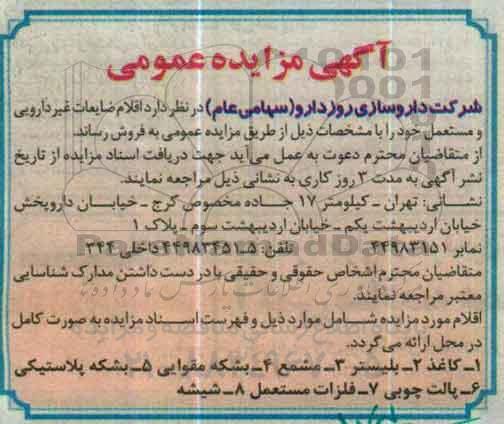 آگهی مزایده عمومی
شرکت داروسازی روز دارو (سهامی عام) در نظر دارد اقلام ضایعات غیر دارویی
و مستعمل خود را با مشخصات ذیل از طریق مزایده عمومی به فروش رساند.
از متقاضیان محترم دعوت به عمل می‌آید جهت دریافت اسناد مزایده از تاریخ
نشر آگهی به مدت ۳ روز کاری به نشانی ذیل مراجعه نمایند.
نشانی: تهران - کیلومتر ۱۷ جاده مخصوص کرج - خیابان داروپخش
خیابان اردیبهشت یکم - خیابان اردیبهشت سوم - پلاک ۱
نمابر ۴۴۹۸۳۱۵۱ تلفن: ۵-۴۴۹۸۳۴۵۱ داخلی ۳۴۴
متقاضیان محترم اشخاص حقوقی و حقیقی با در دست داشتن مدارک شناسایی
معتبر مراجعه نمایند.
اقلام مورد مزایده شامل موارد ذیل و فهرست اسناد مزایده به صورت کامل
در محل ارائه می گردد.
۱- کاغذ ۲- پلیستر ۳- مشمع ۴- بشکه مقوایی ۵- بشکه پلاستیکی
۶- پالت چوبی ۷- فلزات مستعمل ۸- شیشه